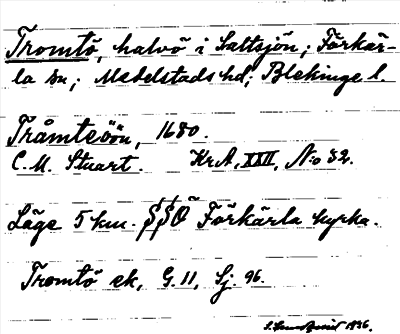 Tromtö, halvö i Saltsjön; Förkär-
la sn; Medelstads hd; Blekinge l.
Tråmteöön, 1680.
C. M. Stuart. KrA, XXII, No 32.
Läge 5 km. SSO Förkärla kyrka.
Tromtö ek, G. 11, Sj. 96.
1936.